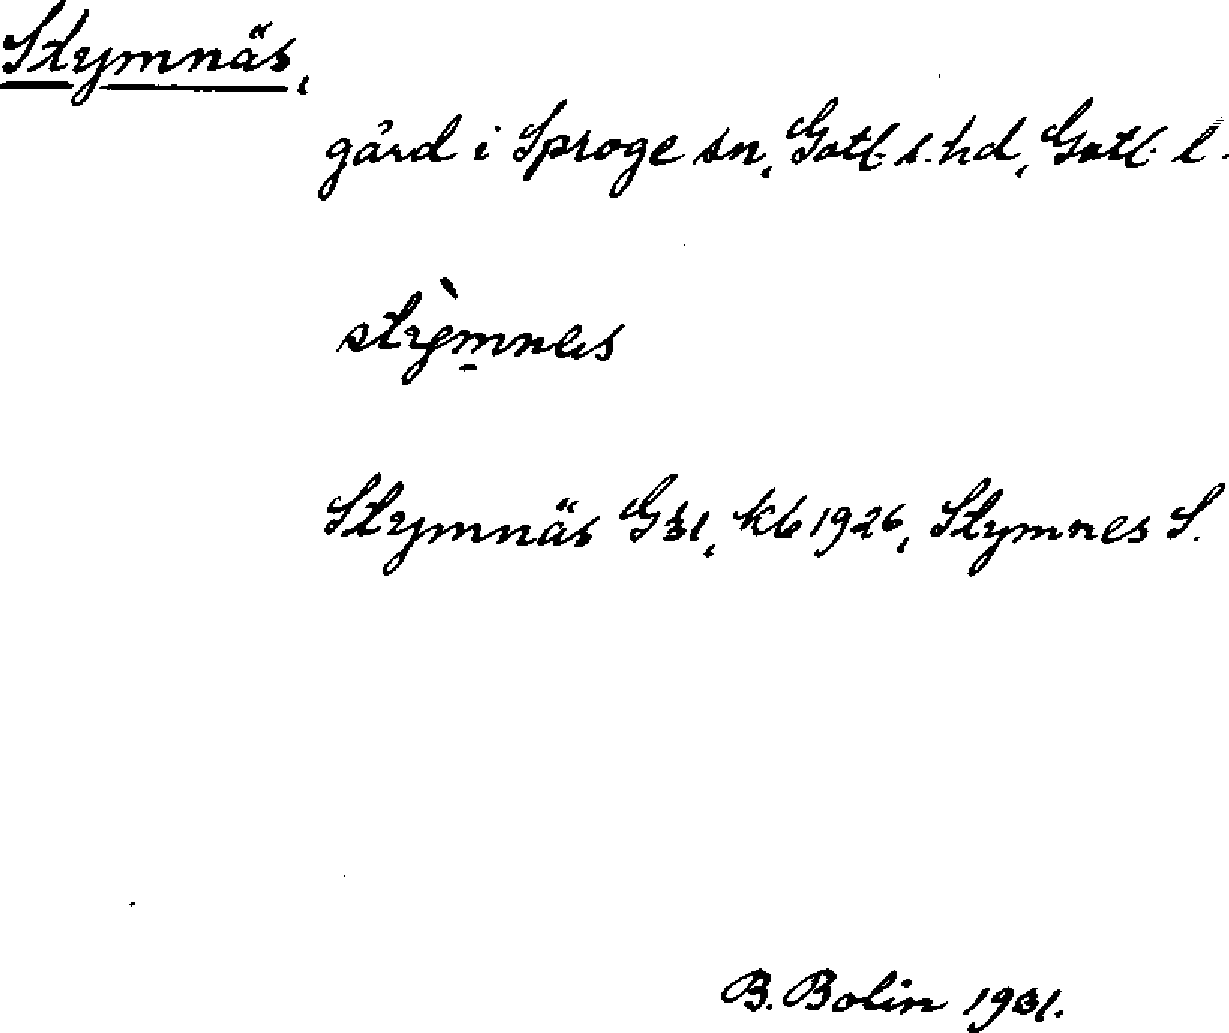 Stymnäs,
gård i Sproge sn, Gotl. s. hd, Gotl. l.
stỳmnes
Stymnäs Gsl, Kb 1926, Stymnes S.
B. Bolin 1931.